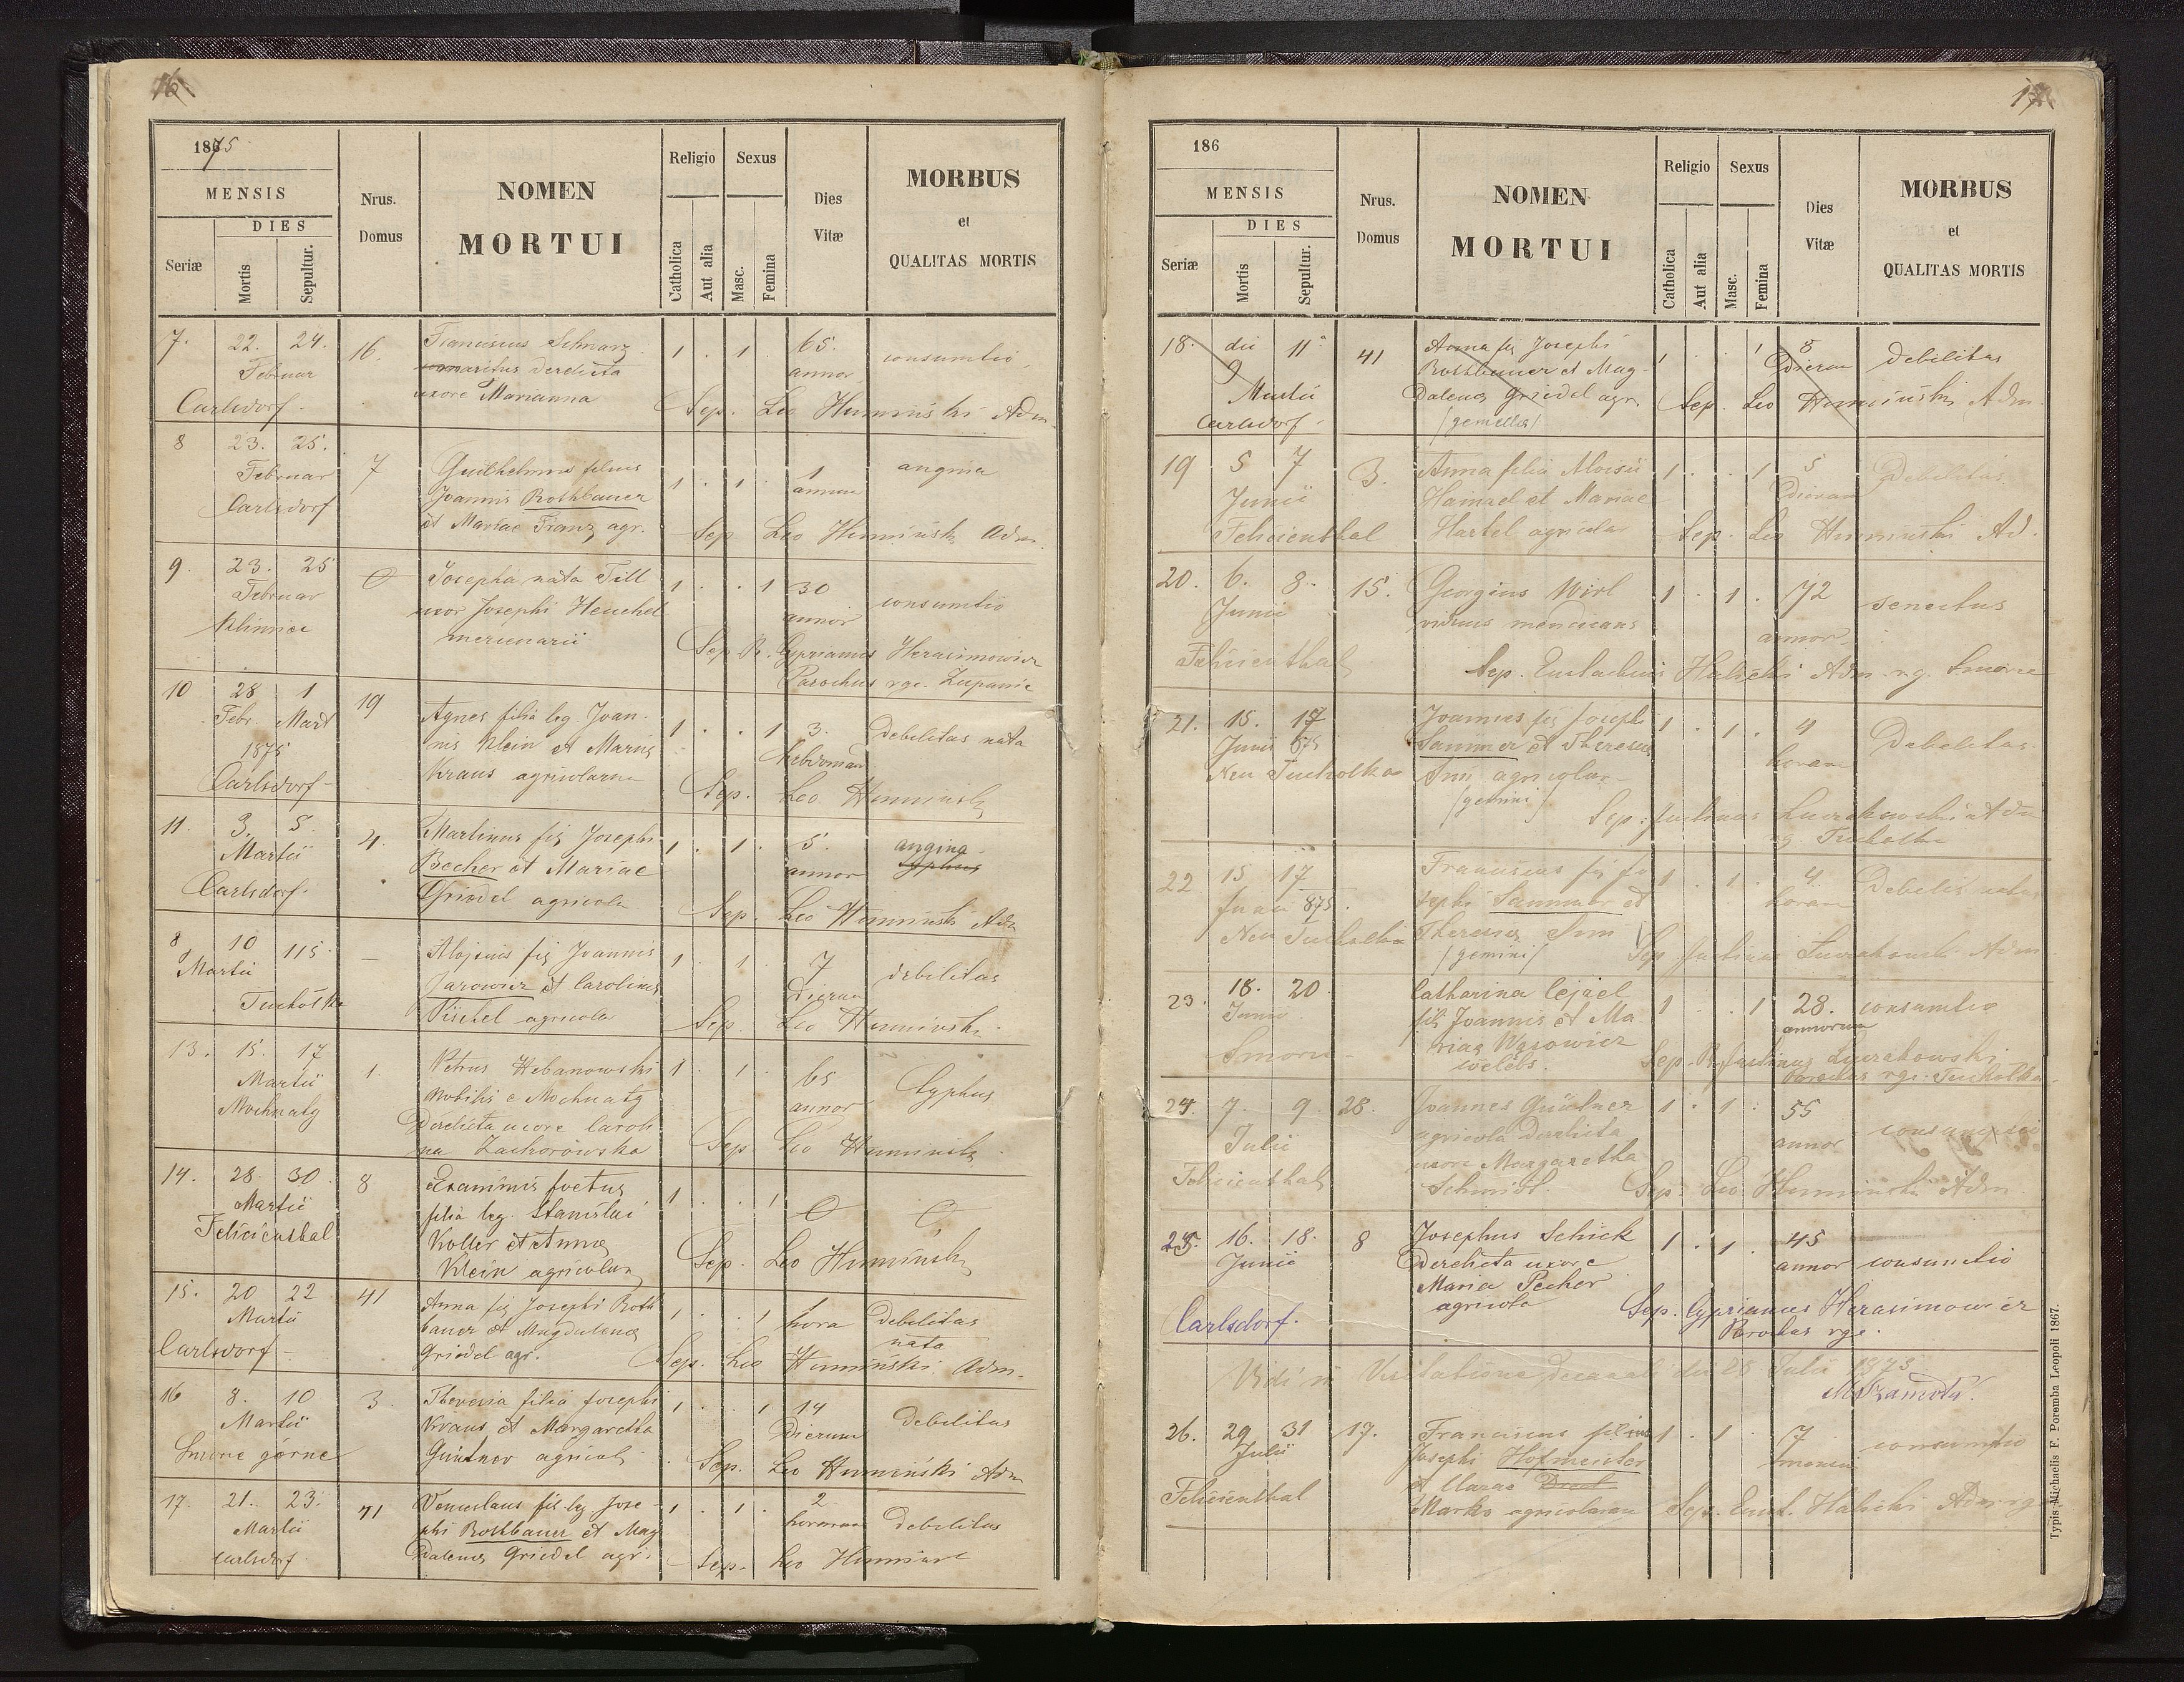 16
1875
MENSIS
DIES
Seriæ
Mortis
Sepultur.
Nrus.
Domus
NOMEN
MORTUI
Religio
Catholica
Aut alia
Sexus
Masc.
Femina
Dies
Vitæ
MORBUS
et
QUALITAS MORTIS
7. 22. 24. 16. Franciscus Schwarz 1 . 1 . 65. consumtio
Februar maritus derelicta annor
uxore Marianna
Carlsdorf. Sep. Leo Humiński Adm.
8 23. 25. 7 Guilhelmus filius 1 . 1 . 1 angina
Februar Joannis Rothbauer annum
Carlsdorf et Mariae Franz agr. Sep Leo Humiński Adm.
9. 23. 25 0 Josepha nata Till 1 . . 1 30 consumtio
Februar uxor Josephi Heuchel annor
Klimiec mercenarii Sep R. Cyprianus Herasimowicz
Parochus rgc. Zupanie
10 28 1 19 Agnes filia leg. Joan- 1 . . 1 3. Debelitas nata
Febr. Mart nis Klein et Mariae hebdomad
1875 Kraus agricolarum
Carlsdorf Sep. Leo Humiński
11. 3. 5. 4. Martinus fis Josephi 1 . 1 . 5. angina
Martii Becher et Mariae annor typhus
Carlsdorf. Griedel agricola Sep. Leo Humiński Adm
8 10 115. — Alojsius fis Joannis 1 1 7 debilitas
Martii Jarowicz et Carolinae dierum
Tucholka Pischel agricola Sep. Leo Humiński
13. 15. 17 1. Petrus Hebanowski 1 1 65 Typhus
Martii Nobilis e Mochnaty annor
Mochnaty Derelicta uxore Caroli
na Zachorowska Sep Leo Humiński
14. 28. 30. 8 Exanimis foetus 1 . . 1 0 0
Martii filia leg. Stanislai
Felicienthal Koller et Annae
Klein agricolar Sep. Leo Humiński
15. 20 22 41 Anna fis Josephi Roth 1 . . 1 hora Debelitas
Martii bauer et Magdalenae nata
Carlsdorf Griedel agr. Sep. Leo Humiński Adm.
16 8. 10 3. Theresia filia Josephi 1 . . 1 14 debelitas
Martii Kraus et Margaretha Dierum
Smorze górne Güntner agricol Sep. Leo Humiński Adm
17. 21. 23. 41 Venceslaus fil leg. Jose- 1 . 1 . 2 debelitas
Martii phi Rothbauer et Mag horarum
Carlsdorf. dalenae Griedel agr. Sep. Leo Humiński
17
186
MENSIS
DIES
Seriæ
Mortis
Sepultur.
Nrus.
Domus
NOMEN
MORTUI
Religio
Catholica
Aut alia
Sexus
Masc.
Femina
Dies
Vitæ
MORBUS
et
QUALITAS MORTIS
18. die 11 41 Anna fis Josephi 1 . . 1 8 debilitas
9 Rothbauer et Mag- Dierum
Martii dalenae Griedel agr. Sep. Leo Humiński Adm.
Carlsdorf. /gemella/
19 5 7 3. Anna filia Aloisii 1 . . 1 5 Debelitas
Junii Hamael et Mariae Dierum
Felicienthal Hartel agricolar Sep. Leo Humiński Ad.
20. 6. 8. 15. Georgius Wirl 1 . 1 . 72 senectus
Junii viduus mendicans annor
Felicienthal Sep. Eustachius Halicki Adm. r.g. Smorze
21. 15. 17 Joannes fis Josephi 1 . 1 . 4 Debelitas
Junii 875 Sammer et Theresiae horar
Neu Tucholka agricolar
/gemini/ Sep. Justinus Adm
rg. Tucholka
22 15 17 Franciscus fis Jo 1 . 1 . 4. Debelit nata
Junii 875. sephi Sammer et horar
Neu Tucholka Theresiae
/gemini/ Sep. Justinus Adm
23. 18. 20. Catharina 1 . . 1 28. consumtio
Junii filia Joannis et Ma- annorum
Smorze riae Wąsowicz
coelebs. Sep. R. Justinus
Parochus rgc. Tucholka
24. 7. 9. 28. Joannes Güntner 1 . 1 . 55 consumptio
Julii agricola Derelicta annor
Felicienthal uxore Margaretha
Schmidt. Sep. Leo Humiński Adm
25. 16. 18. 8 Josephus Schick 1 . 1 . 45 consumtio
Junii Derelicta uxore annor
Maria Pecher
agricola Sep. Cyprianus Herasimowicz
Carlsdorf. Parochus rgc.
Vidi in Visitatione decanali die 28 Julii 1875
26. 29 31 17. Franciscus filius 1 . 1 7 consumtio
Julii Josephi Hofmeister mensium
Felicienthal et Clarae
Marko agricolarum Sep. Eust. Halicki Adm rg
Typis Michaelis F. Poremba Leopoli 1867.